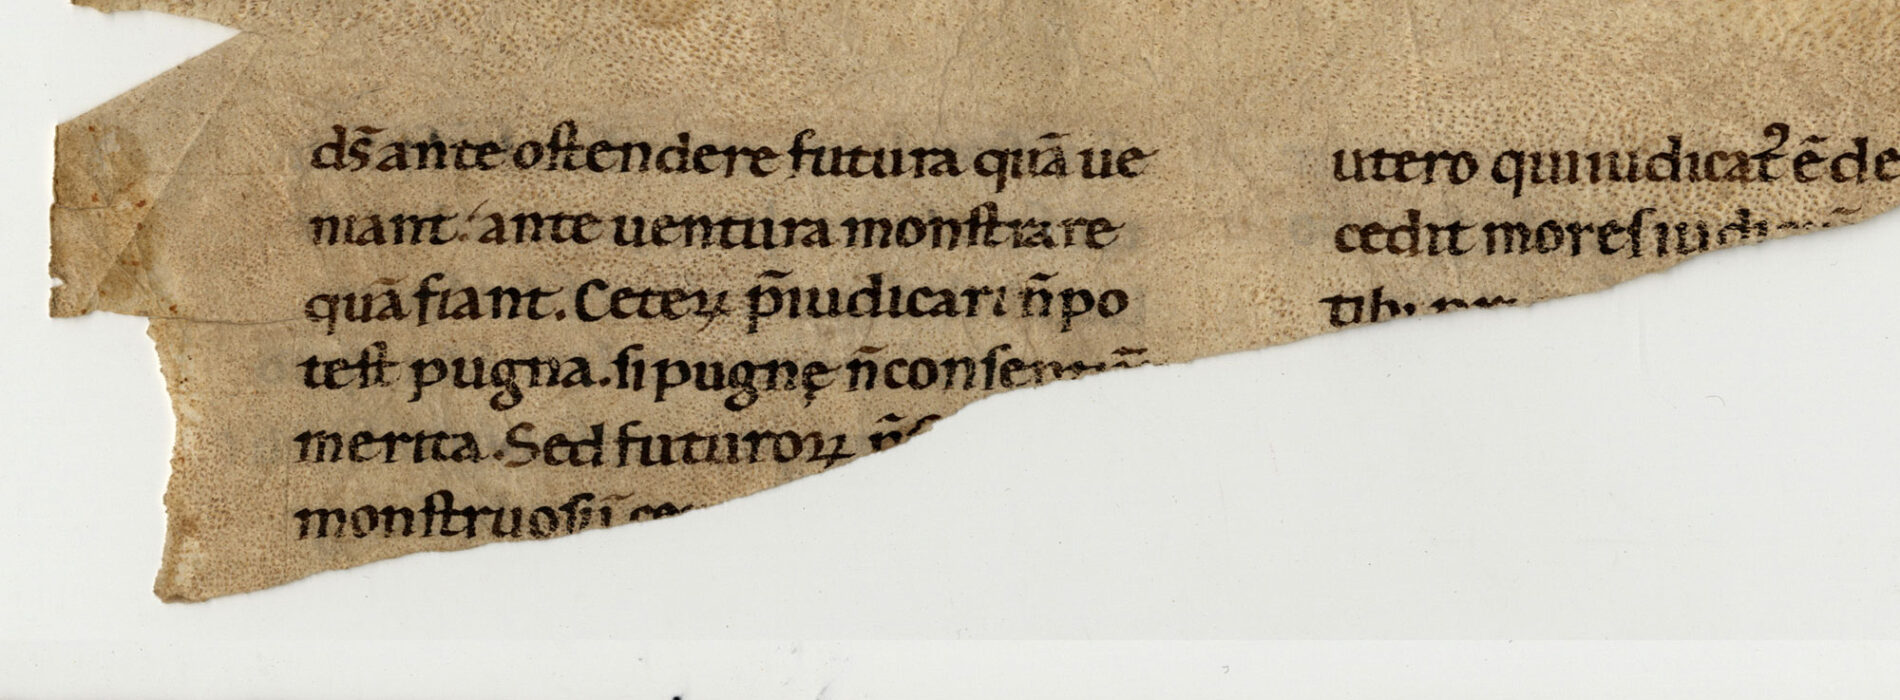 ds̄ ante ostendere futura quā ue
niant. ante uentura monstrare
quā fiant. Ceteꝝ p̄iudicari n̄ po
test pugna. si pugnę n̄
merita. Sed futuroꝝ
utero qui iudicat᾽ ē de
cedit mores